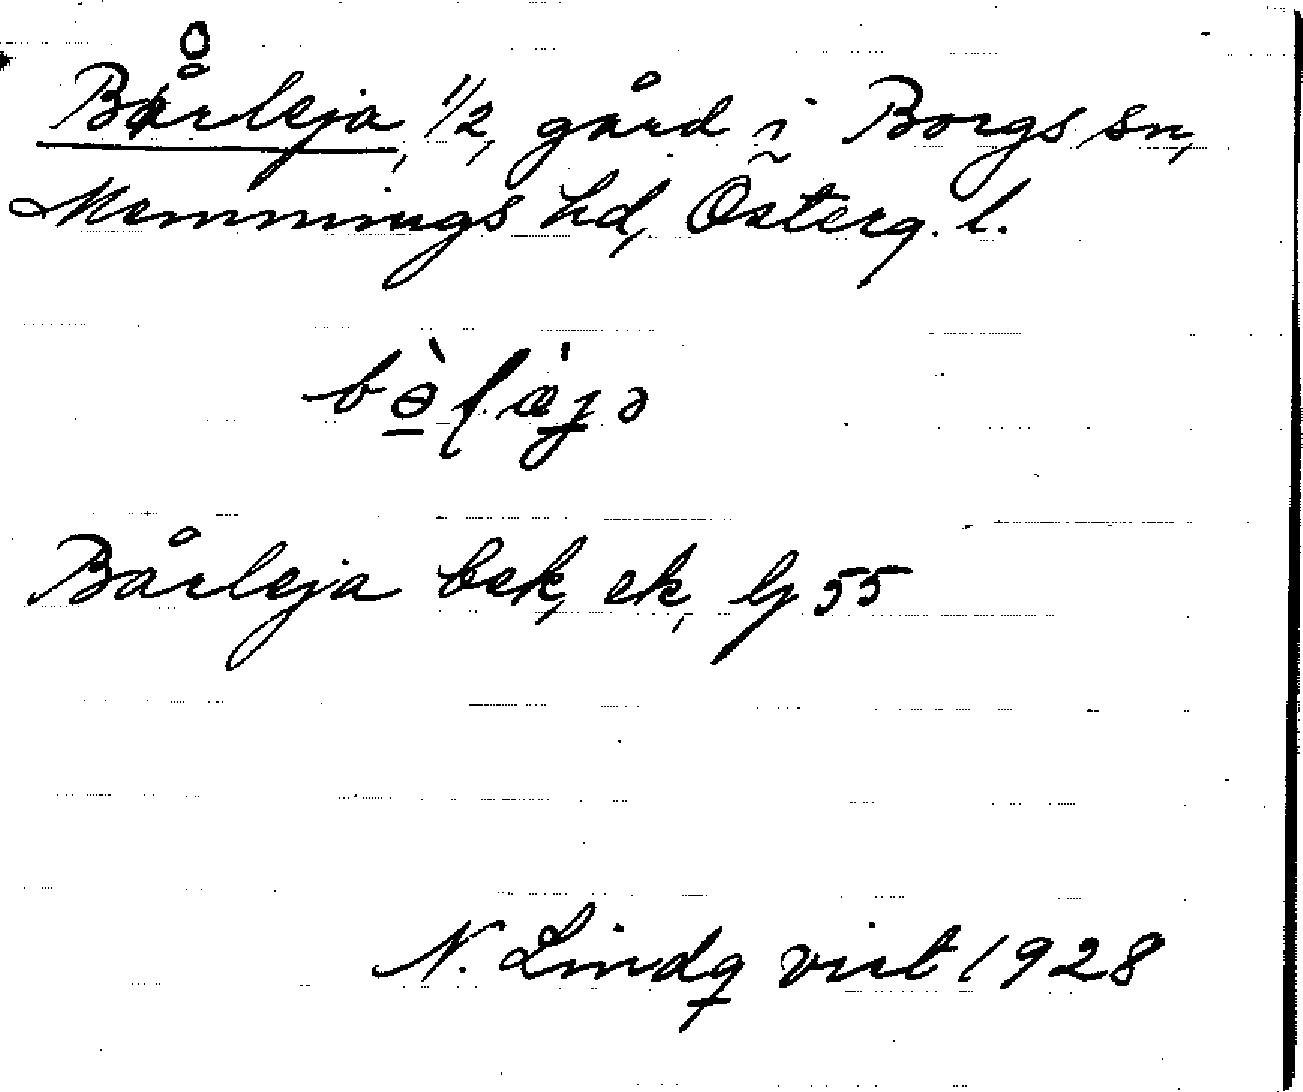 Bårleja, 1/2, gård i Borgs sn,
Memmings hd, Österg. l.
Bårleja bek, ek, lj 55
N. Lindqvist 1928